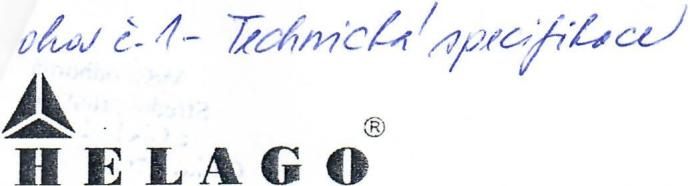 č. 1 - Technická specifikace
HELAGO®